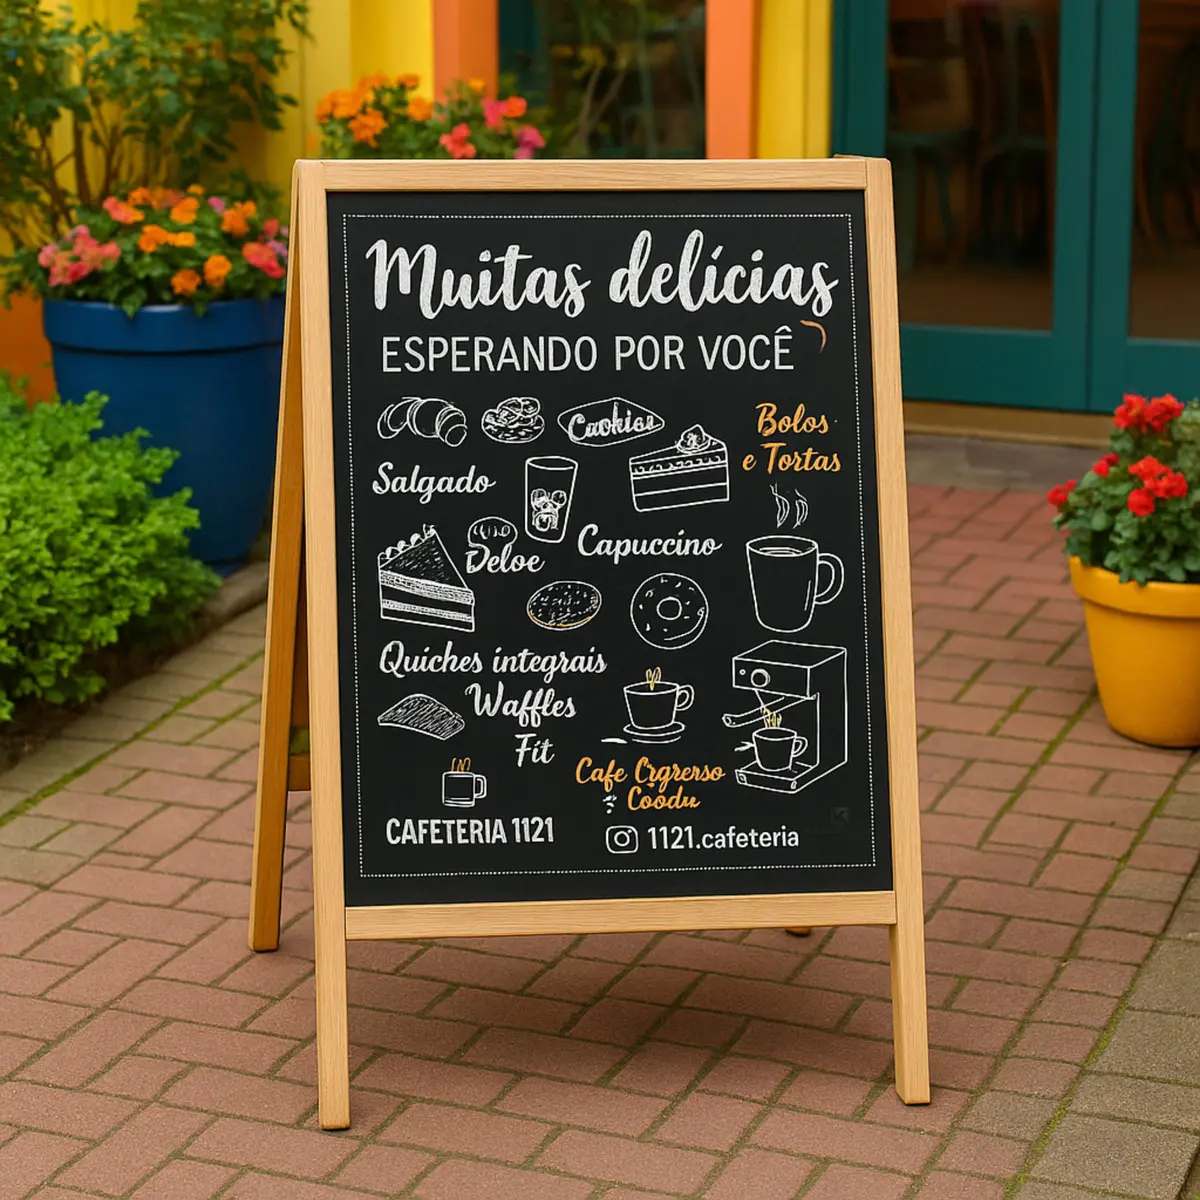 Muitas delícias
ESPERANDO POR VOCÊ
Cookies
Bolos
e Tortas
Salgado
Capuccino
Deloe
Quiches integrais
Waffles
Fit
Cafe Crgrerso
Coodu
CAFETERIA 1121
1121.cafeteria